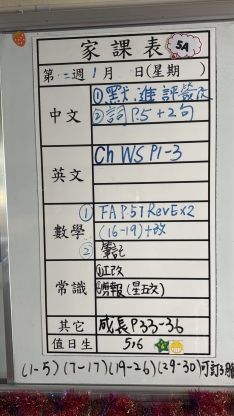 家課表 5A
第二週 1月 日(星期 )
中文
①默、進評簽改
②詞P.5+2句
英文
Ch WS P1-3
數學
① FA P.57 RevEx2
(16-19)+改
② 筆記
常識
①工改
②剪報(星五交)
其它 成長P33-36
值日生 5,6
(1-5)(7-17)(19-26)(29-30)可訂